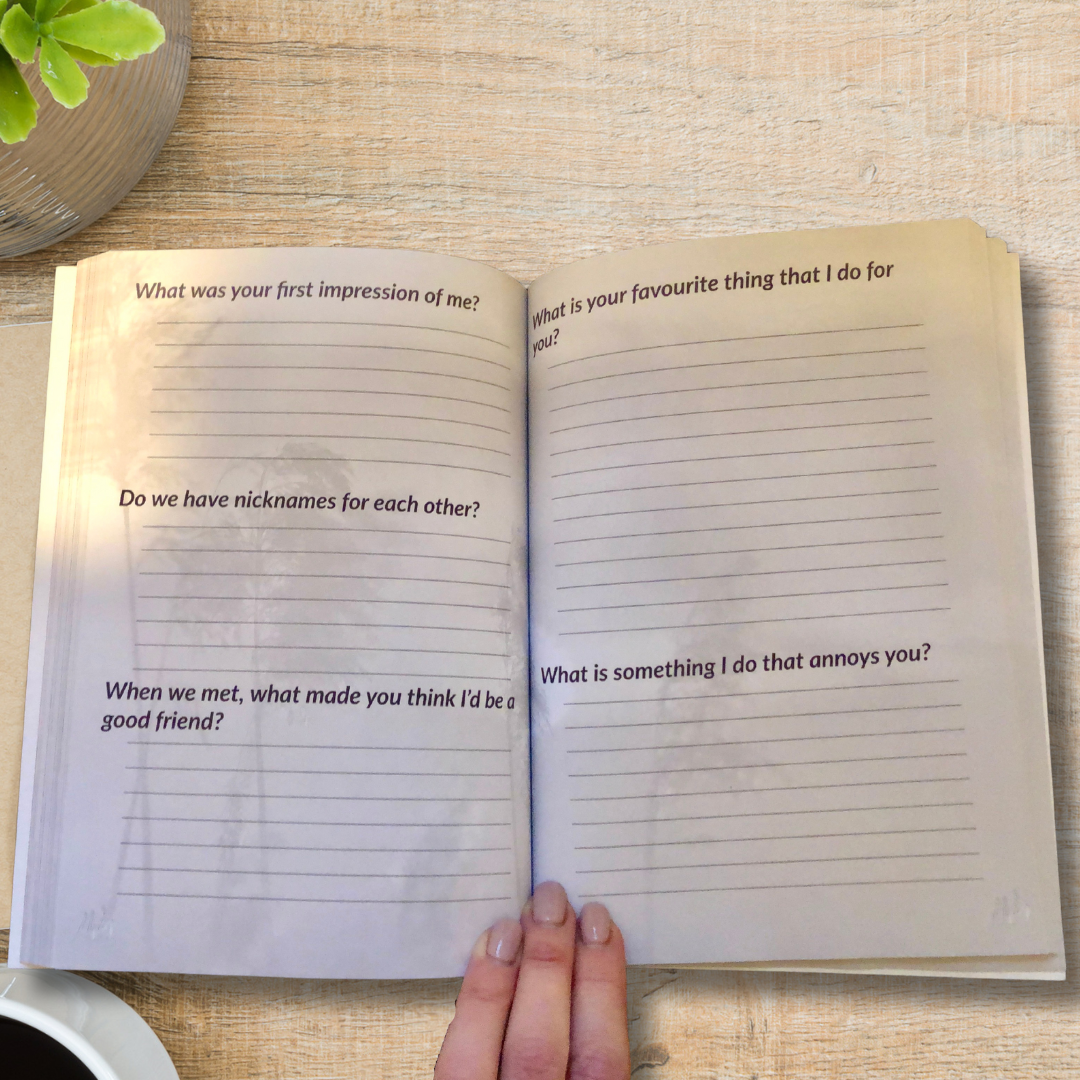 What was your first impression of me?
Do we have nicknames for each other?
When we met, what made you think I'd be a
good friend?
What is your favourite thing that I do for
you?
What is something I do that annoys you?